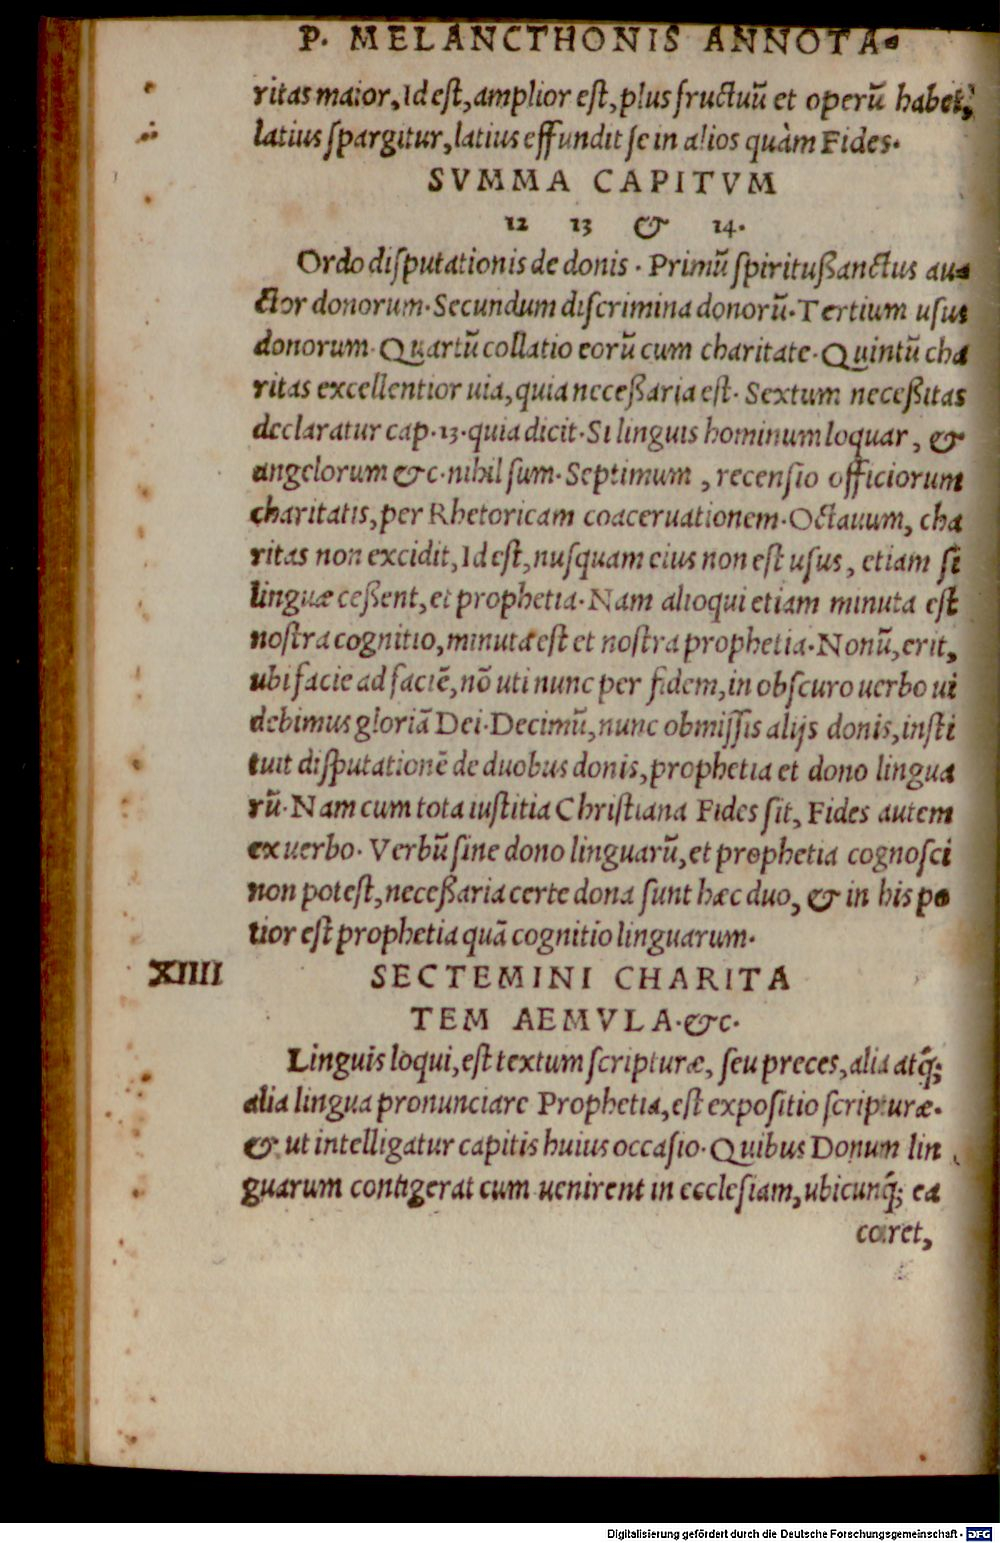 P. MELANCTHONIS ANNOTA-
ritas maior, Id est, amplior est, plus fructuũ et operũ habet,
latius spargitur, latius effundit se in alios quàm Fides.
SVMMA CAPITVM
12 13 & 14.
Ordo disputationis de donis. Primũ spiritußanctus au-
ctor donorum. Secundum discrimina donorũ. Tertium usus
donorum. Quartũ collatio eorũ cum charitate. Quintũ cha
ritas excellentior uia, quia neceßaria est. Sextum neceßitas
declaratur cap. 13. quia dicit. Si linguis hominum loquar, &
angelorum &c. nihil sum. Septimum, recensio officiorum
charitatis, per Rhetoricam coaceruationem. Octauum, cha
ritas non excidit, Id est, nusquam eius non est usus, etiam si
linguæ ceßent, et prophetia. Nam alioqui etiam minuta est
nostra cognitio, minuta est et nostra prophetia. Nonũ, erit,
ubi facie ad faciẽ, nõ uti nunc per fidem, in obscuro uerbo ui
debimus gloriã Dei. Decimũ, nunc obmissis alijs donis, insti
tuit disputationẽ de duobus donis, prophetia et dono lingua
rũ. Nam cum tota iustitia Christiana Fides sit, Fides autem
ex uerbo. Verbũ sine dono linguarũ, et prophetia cognosci
non potest, neceßaria certe dona sunt hæc duo, & in his po
tior est prophetia quã cognitio linguarum.
XIIII SECTEMINI CHARITA
TEM AEMVLA. &c.
Linguis loqui, est textum scripturæ, seu preces, alia atq́;
alia lingua pronunciare Prophetia, est expositio scripturæ.
& ut intelligatur capitis huius occasio. Quibus Donum lin
guarum contigerat cum uenirent in ecclesiam, ubicunq́; ea
caret,
Digitalisierung gefördert durch die Deutsche Forschungsgemeinschaft - DFG